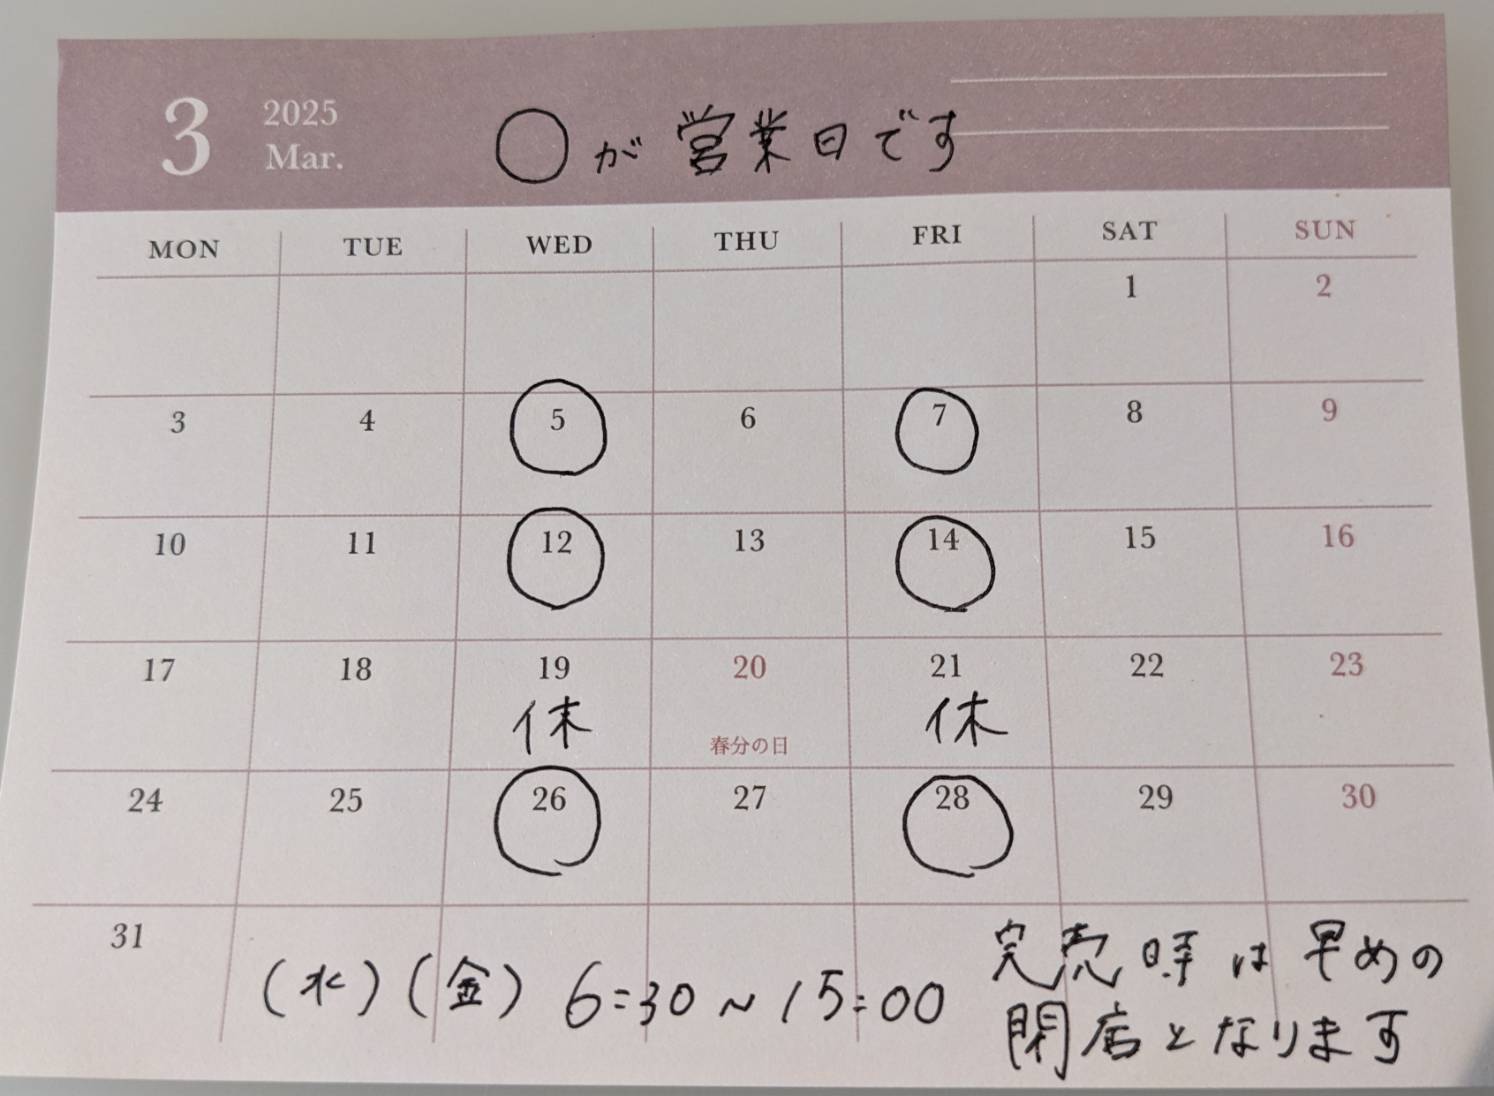 3
2025
Mar.
○が営業日です
MON TUE WED THU FRI SAT SUN
1 2
3 4 5 6 7 8 9
10 11 12 13 14 15 16
17 18 19 20 21 22 23
休 春分の日 休
24 25 26 27 28 29 30
31
(水)(金) 6:30～15:00
完売時は早めの
閉店となります